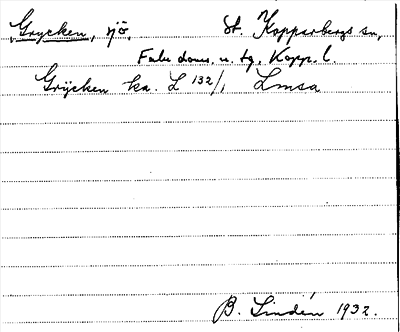 Grycken, sjö. St. Kopparbergs sn,
Falu doms. o. tg. Kopp. l.
Grycken ka. L 132/1 Lmsa
B. Lindén 1932.